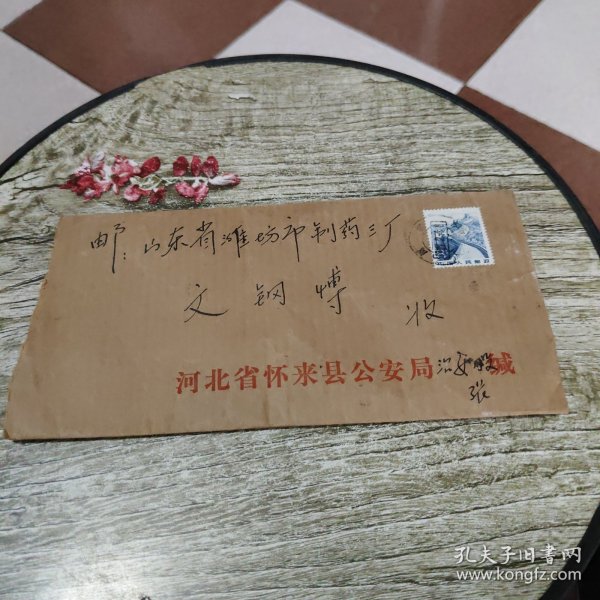 邮：山东省潍坊市制药三厂
文钢博 收
河北省怀来县公安局治安股 缄
张
孔夫子旧书网
www.kongfz.com